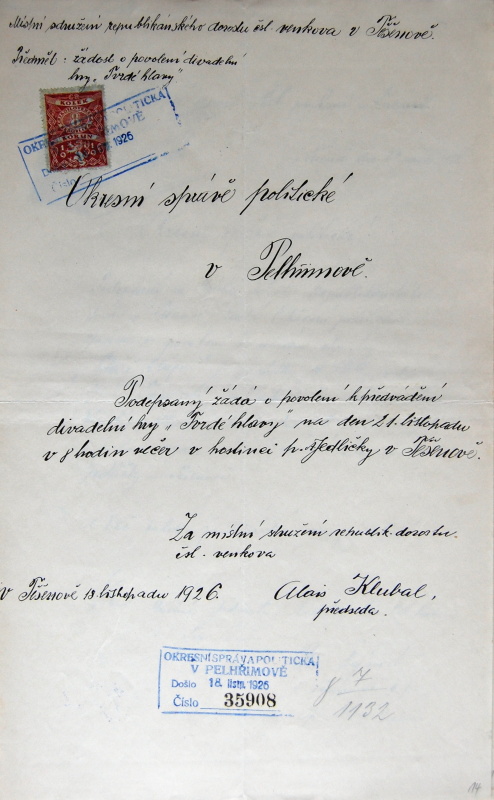 Místní sdružení republikánského dorostu čsl. venkova v Těšenově.
Předmět: žádost o povolení divadelní
hry „Tvrdé hlavy"
KOLEK
OKRESNÍ SPRÁVA POLITICKÁ
V PELHŘIMOVĚ
1926
Číslo
Okresní správě politické
v Pelhřimově.
Podepsaný žádá o povolení k předvádění
divadelní hry „Tvrdé hlavy" na den 21. listopadu
v 8 hodin večer v hostinci p. Jedličky v Těšenově.
Za místní sdružení republik. dorostu
čsl. venkova
v Těšenově 18 listopadu 1926.
Alois Klubal,
předseda.
OKRESNÍ SPRÁVA POLITICKÁ
V PELHŘIMOVĚ
Došlo 18. listop. 1926
Číslo 35908
7
1132